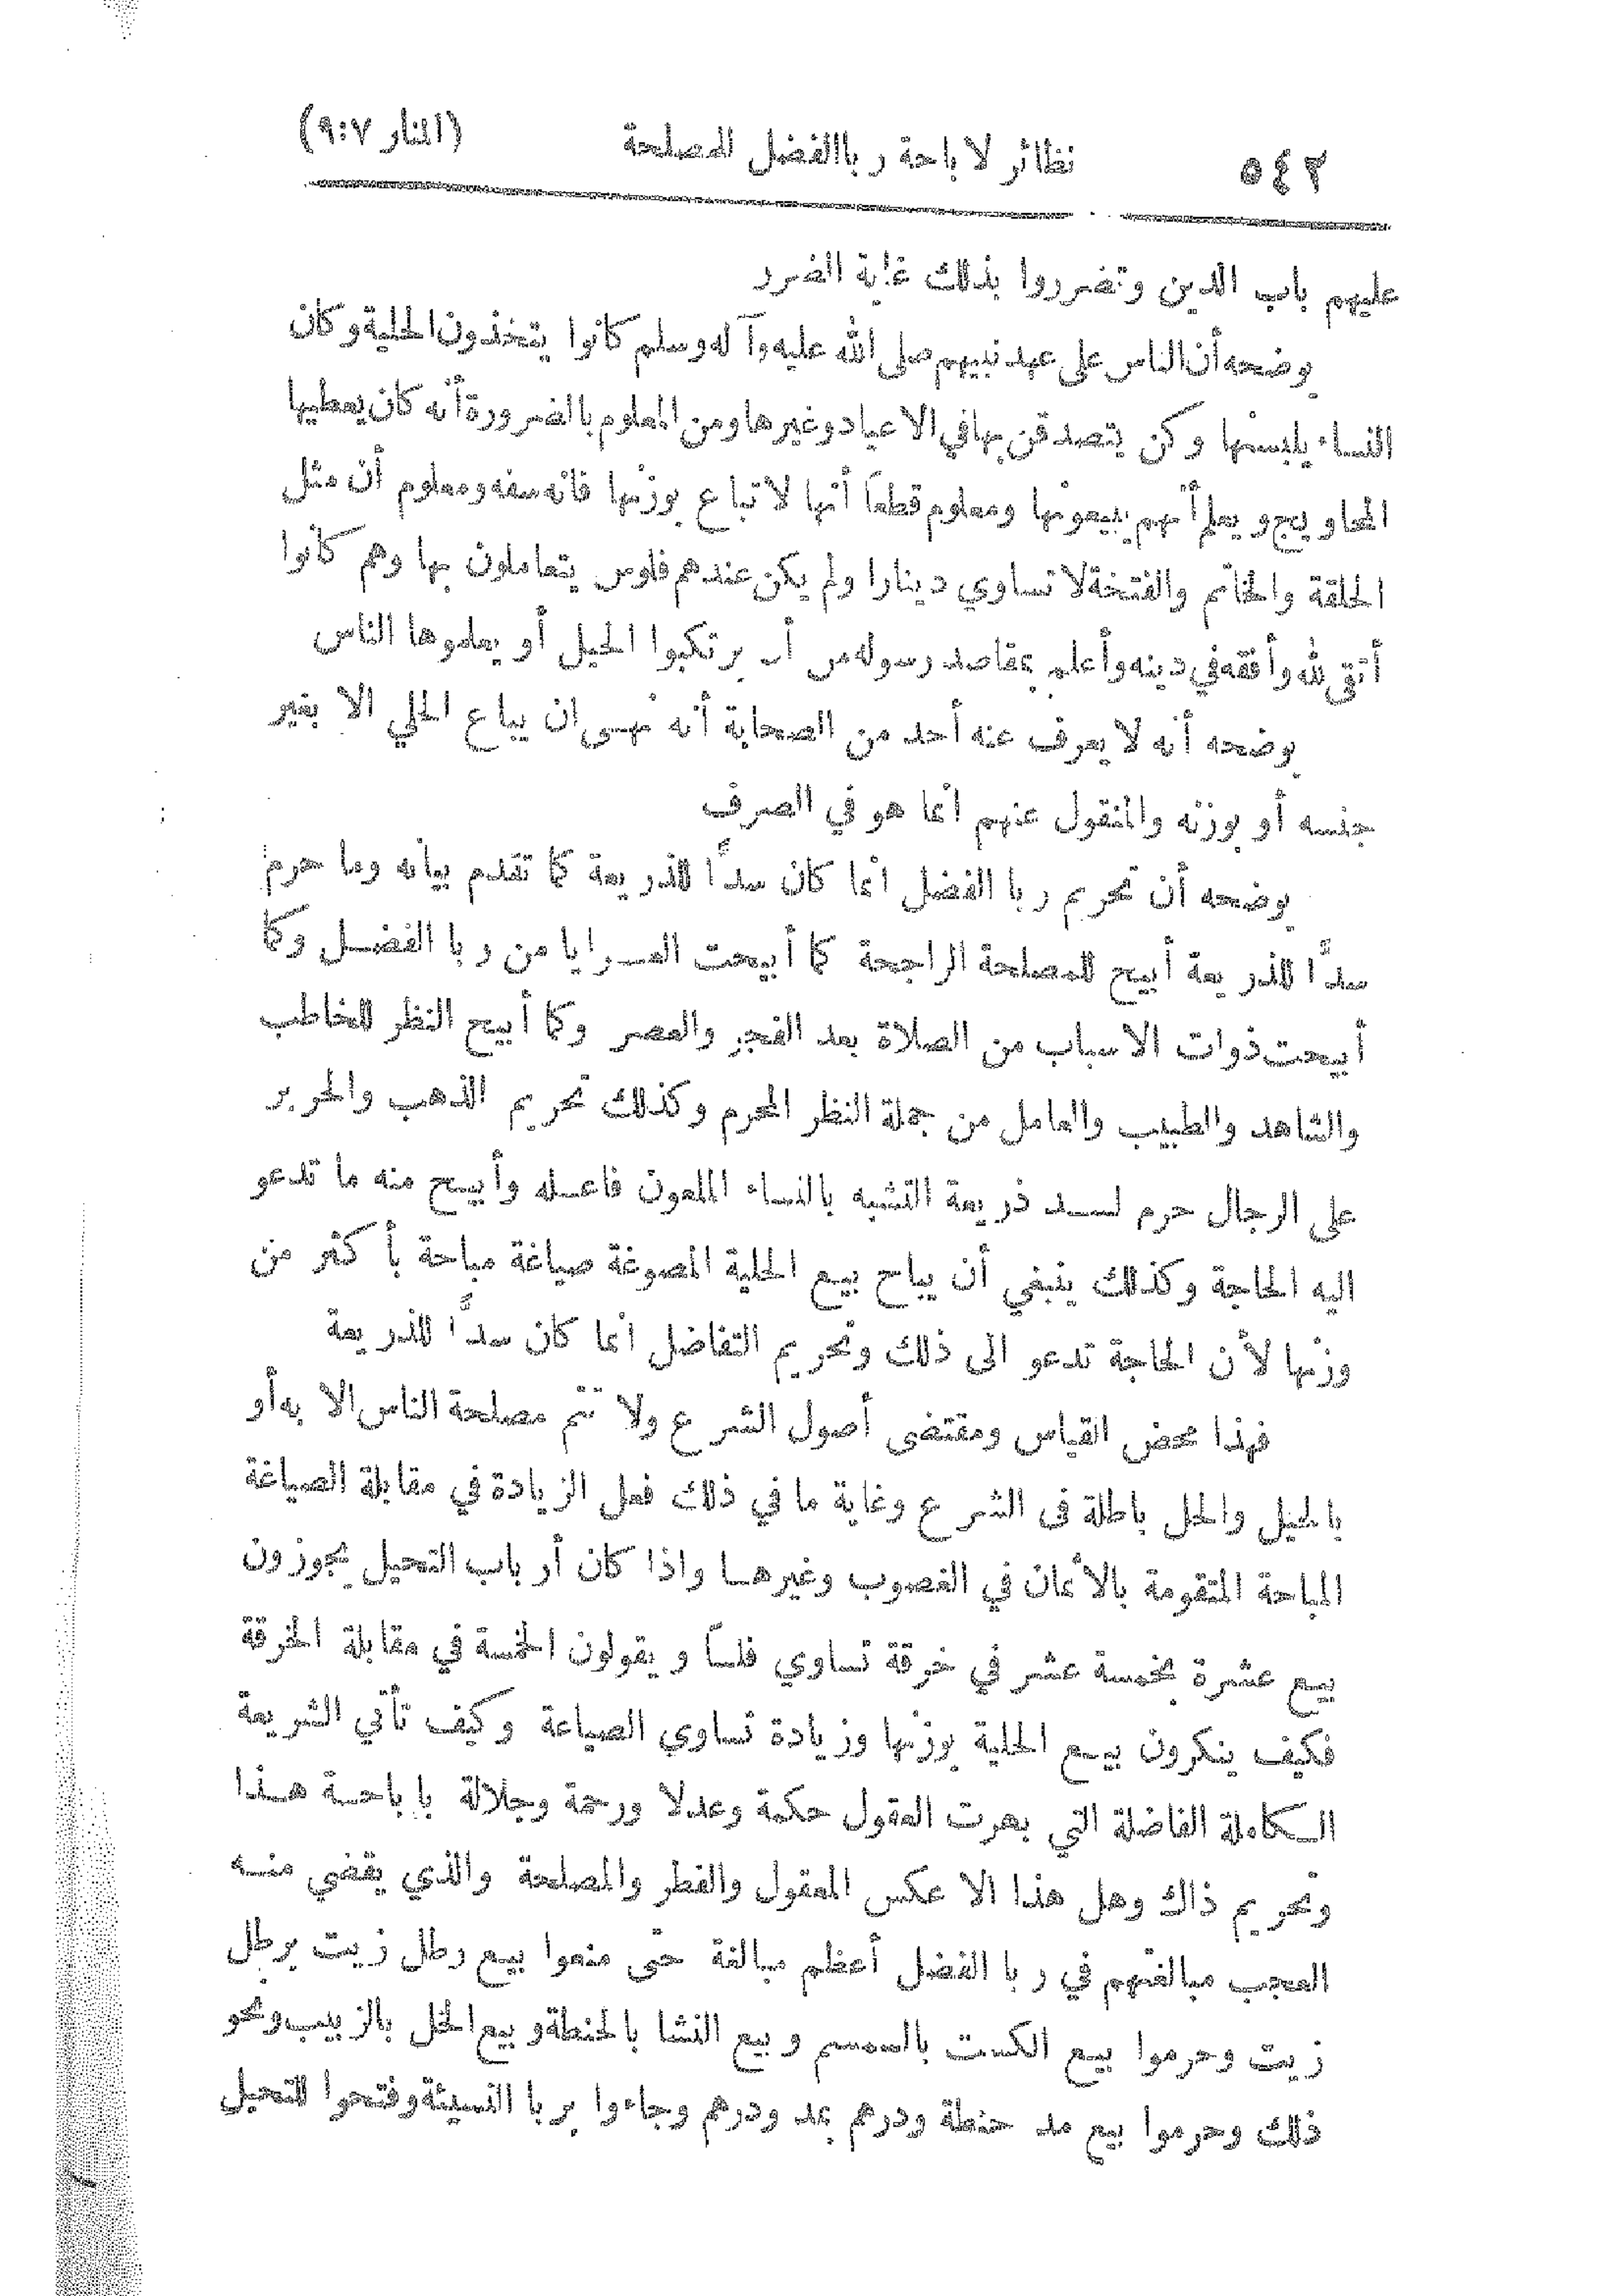 ٥٤٢ نظائر لاباحة ربا الفضل للمصلحة (المنار ٩:٧)
عليهم باب الدين وتضرروا بذلك غاية الضرر
يوضحه أن الناس على عهد نبيهم صلى الله عليه وآله وسلم كانوا يتخذون الحلية وكان
النساء يلبسنها وكن يتصدقن بها في الاعياد وغيرها ومن المعلوم بالضرورة أنه كان يعطيها
المحاويج ويعلم أنهم يبيعونها ومعلوم قطعاً أنها لا تباع بوزنها فانه سفه ومعلوم أن مثل
الحلقة والخاتم والفتخة لا تساوي دينارا ولم يكن عندهم فلوس يتعاملون بها وهم كانوا
أتقى لله وأفقه في دينه وأعلم بمقاصد رسوله من أن يرتكبوا الحيل أو يعلموها الناس
يوضحه أنه لا يعرف عنه أحد من الصحابة أنه نهى ان يباع الحلي الا بغير
جنسه أو بوزنه والمنقول عنهم انما هو في الصرف
يوضحه أن تحريم ربا الفضل انما كان سدًّا للذريعة كما تقدم بيانه وما حرم
سدًّا للذريعة أبيح للمصلحة الراجحة كما أبيحت العرايا من ربا الفضل وكما
أبيحت ذوات الاسباب من الصلاة بعد الفجر والعصر وكما أبيح النظر للخاطب
والشاهد والطبيب والعامل من جملة النظر المحرم وكذلك تحريم الذهب والحرير
على الرجال حرم لسد ذريعة التشبه بالنساء الملعون فاعله وأبيح منه ما تدعو
اليه الحاجة وكذلك ينبغي أن يباح بيع الحلية المصوغة صياغة مباحة بأكثر من
وزنها لأن الحاجة تدعو الى ذلك وتحريم التفاضل انما كان سدًّا للذريعة
فهذا محض القياس ومقتضى أصول الشرع ولا تتم مصلحة الناس الا به أو
بالحيل والحل باطلة فى الشرع وغاية ما في ذلك فعل الزيادة في مقابلة الصياغة
المباحة المتقومة بالأثمان في الغصوب وغيرها واذا كان أرباب التحيل يجوزون
بيع عشرة بخمسة عشر في خرقة تساوي فلساً ويقولون الخمسة في مقابلة الخرقة
فكيف ينكرون بيع الحلية بوزنها وزيادة تساوي الصياغة وكيف تأتي الشريعة
الكاملة الفاضلة التي بهرت العقول حكمة وعدلا ورحمة وجلالة باباحة هذا
وتحريم ذاك وهل هذا الا عكس المعقول والفطر والمصلحة والذي يقضي منه
العجب مبالغتهم في ربا الفضل أعظم مبالغة حتى منعوا بيع رطل زيت برطل
زيت وحرموا بيع الكست بالسمسم وبيع النشا بالحنطة وبيع الخل بالزبيب ونحو
ذلك وحرموا بيع مد حنطة ودرهم بمد ودرهم وجاءوا بربا النسيئة وفتحوا للتحيل